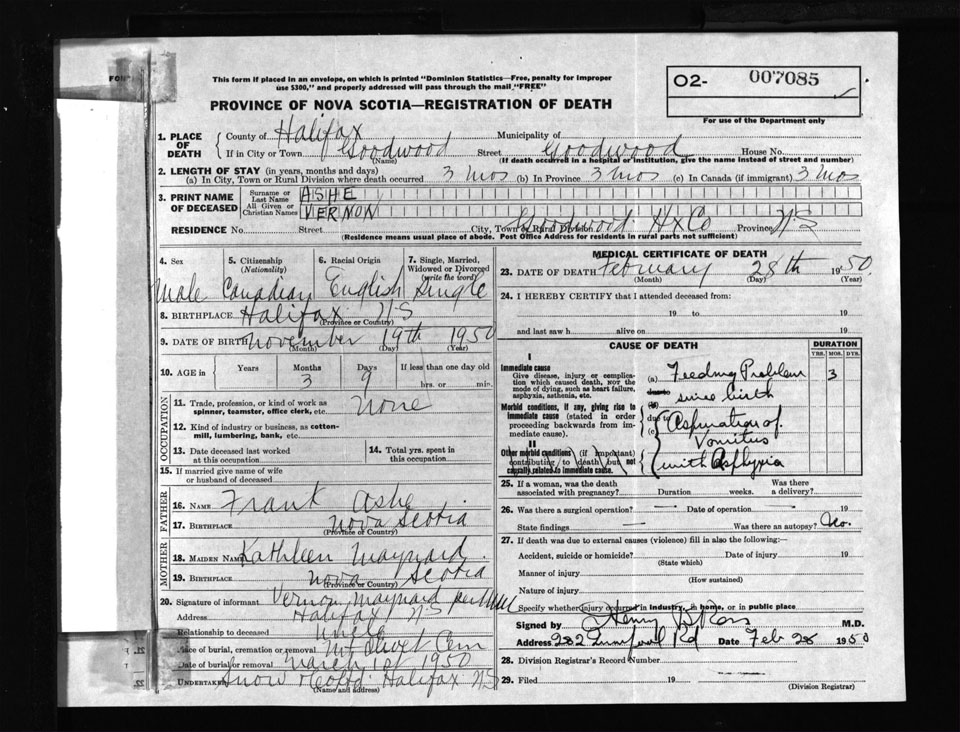 This form if placed in an envelope, on which is printed "Dominion Statistics—Free, penalty for improper
use $300," and properly addressed will pass through the mail "FREE"
PROVINCE OF NOVA SCOTIA—REGISTRATION OF DEATH
O2- 007085
For use of the Department only
1. PLACE OF DEATH
County of Halifax Municipality of
If in City or Town Goodwood Street Goodwood House No.
(Name) (If death occurred in a hospital or institution, give the name instead of street and number)
2. LENGTH OF STAY (in years, months and days)
(a) In City, Town or Rural Division where death occurred 3 mos (b) In Province 3 mos (c) In Canada (if immigrant) 3 mos
3. PRINT NAME OF DECEASED
Surname or Last Name ASHE
All Given or Christian Names VERNON
RESIDENCE No. Street City, Town or Rural Division Goodwood Hx Co Province NS
(Residence means usual place of abode. Post Office Address for residents in rural parts not sufficient)
4. Sex 5. Citizenship (Nationality) 6. Racial Origin 7. Single, Married, Widowed or Divorced (write the word)
Male Canadian English Single
8. BIRTHPLACE Halifax NS
(Province or Country)
9. DATE OF BIRTH November 19th 1950
(Month) (Day) (Year)
10. AGE in Years Months Days If less than one day old
3 9 hrs. or min.
OCCUPATION
11. Trade, profession, or kind of work as
spinner, teamster, office clerk, etc. None
12. Kind of industry or business, as cotton-
mill, lumbering, bank, etc.
13. Date deceased last worked
at this occupation
14. Total yrs. spent in
this occupation
15. If married give name of wife
or husband of deceased
FATHER
16. NAME Frank Ashe
17. BIRTHPLACE Nova Scotia
(Province or Country)
MOTHER
18. MAIDEN NAME Kathleen Maynard
19. BIRTHPLACE Nova Scotia
(Province or Country)
20. Signature of informant Vernon Maynard
Address Halifax NS
Relationship to deceased Uncle
21. Place of burial, cremation or removal Mt Olivet Cem
Date of burial or removal March 1st 1950
22. Undertaker Snow & Co Ltd Halifax NS
(Name and address)
MEDICAL CERTIFICATE OF DEATH
23. DATE OF DEATH February 28th 1950
(Month) (Day) (Year)
24. I HEREBY CERTIFY that I attended deceased from:
19 to 19
and last saw h alive on 19
CAUSE OF DEATH DURATION
YRS. MOS. DYS.
I
Immediate cause
Give disease, injury or complica-
tion which caused death, NOT the
mode of dying, such as heart failure,
asphyxia, asthenia, etc.
(a) Feeding Problem 3
since birth
Morbid conditions, if any, giving rise to
immediate cause (stated in order
proceeding backwards from im-
mediate cause).
due to
(c) Aspiration of
Vomitus
II
Other morbid conditions (if important)
contributing to death but not
causally related to immediate cause.
with Asphyxia
25. If a woman, was the death
associated with pregnancy? Duration weeks. Was there a delivery?
26. Was there a surgical operation? — Date of operation — 19
State findings — Was there an autopsy? No.
27. If death was due to external causes (violence) fill in also the following:—
Accident, suicide or homicide? Date of injury 19
(State which)
Manner of injury
(How sustained)
Nature of injury
Specify whether injury occurred in industry, in home, or in public place
Signed by Henry B Ross M.D.
Address 282 Rd Date Feb 28 1950
28. Division Registrar's Record Number
29. Filed 19
(Division Registrar)
21.
22.